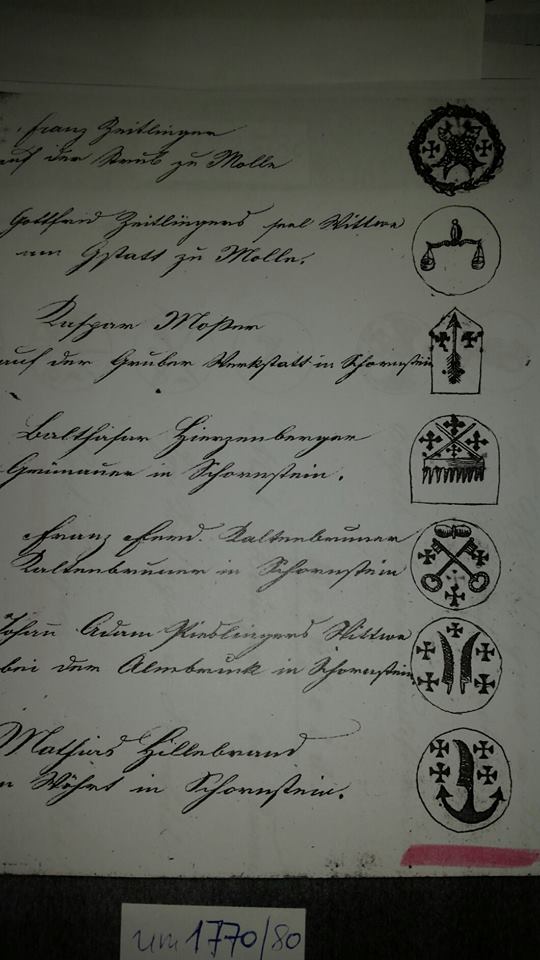 Franz Zeitlinger
auf der Strub zu Molln
Gottfried Zeitlingers seel Wittwe
am Gstatt zu Molln.
Kaspar Moßer
auf der Gruber Werkstatt in Schornstein
Balthasar Hierzenberger
Grünauer in Schornstein.
Franz Ferd. Kaltenbruner
Kaltenbruner in Schornstein
Johann Adam Kieslingers Wittwe
bei der Almbruck in Schornstein
Mathias Hillebrand
Wöhrt in Schornstein.
um 1770/80